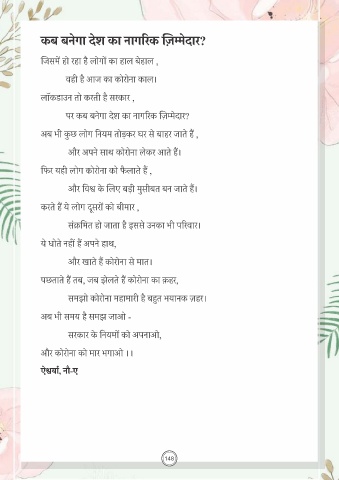 कब बनेगा देश का नागरिक ज़िम्मेदार?
जिसमें हो रहा है लोगों का हाल बेहाल ,
वही है आज का कोरोना काल।
लॉकडाउन तो करती है सरकार ,
पर कब बनेगा देश का नागरिक ज़िम्मेदार?
अब भी कुछ लोग नियम तोड़कर घर से बाहर जाते हैं ,
और अपने साथ कोरोना लेकर आते हैं।
फिर यही लोग कोरोना को फैलाते हैं ,
और विश्व के लिए बड़ी मुसीबत बन जाते हैं।
करते हैं ये लोग दूसरों को बीमार ,
संक्रमित हो जाता है इससे उनका भी परिवार।
ये धोते नहीं हैं अपने हाथ,
और खाते हैं कोरोना से मात।
पछताते हैं तब, जब झेलते हैं कोरोना का क़हर,
समझो कोरोना महामारी है बहुत भयानक ज़हर।
अब भी समय है समझ जाओ -
सरकार के नियमों को अपनाओ,
और कोरोना को मार भगाओ ।।
ऐश्वर्या, नौ-ए
148